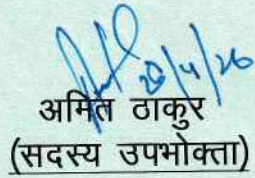 28/4/26
अमित ठाकुर
(सदस्य उपभोक्ता)